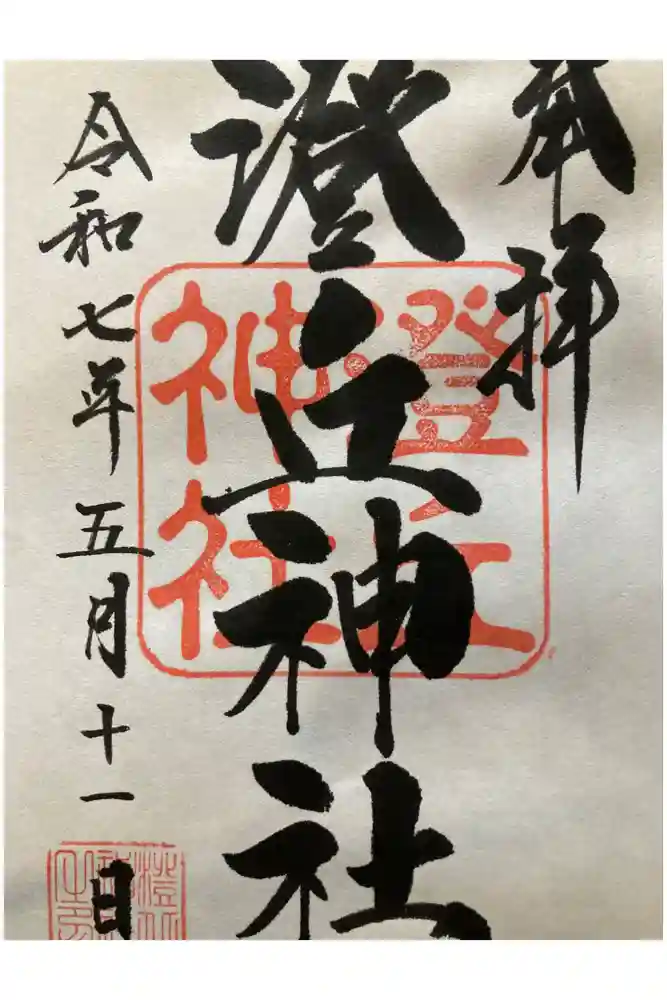 奉拝
澄丘神社
澄丘
神社
令和七年五月十一日